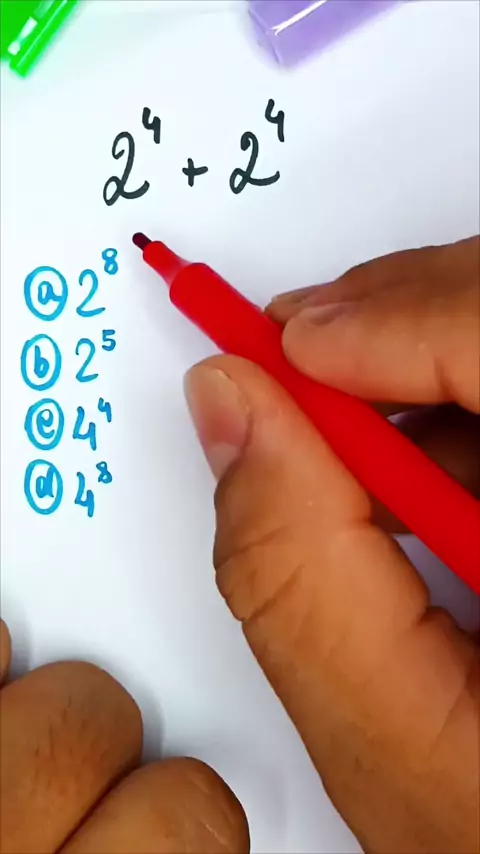 2⁴ + 2⁴
a 2⁸
b 2⁵
c 4⁴
d 4⁸